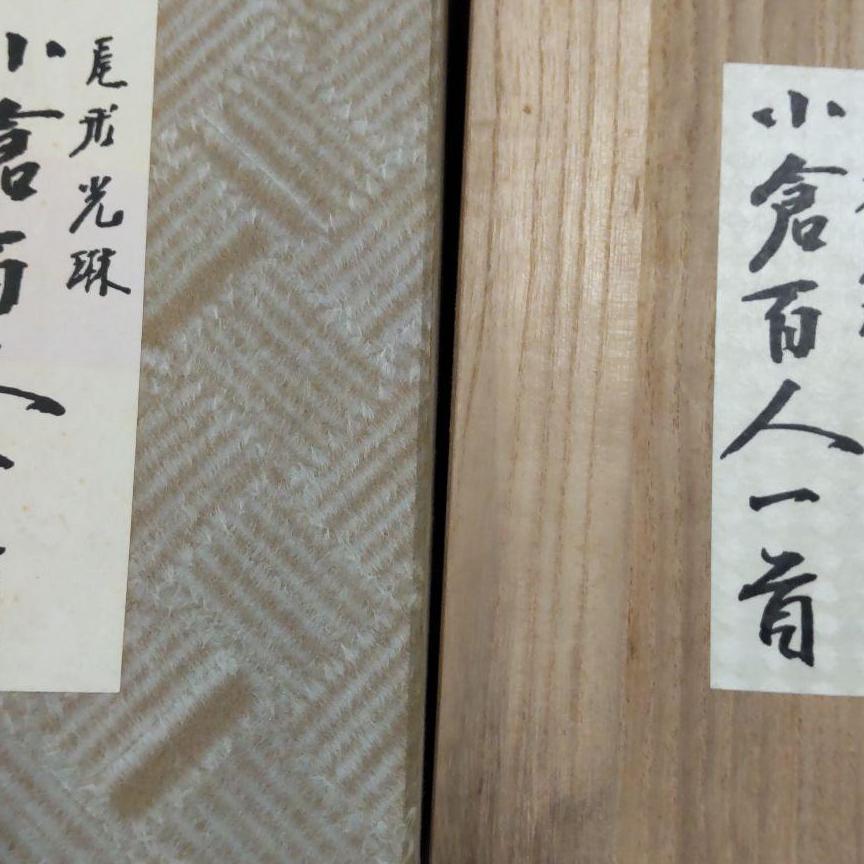 小倉百人一首
尾形光琳
小倉百人一